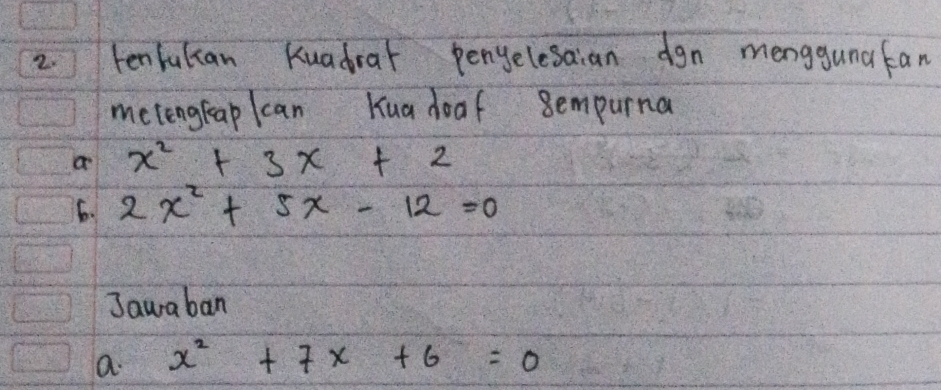 2. tentukan kuadrat penyelesaian dgn menggunakan
melengkapkan kuadraf sempurna
a x² + 3x + 2
b. 2x² + 5x - 12 = 0
Jawaban
a. x² + 7x + 6 = 0